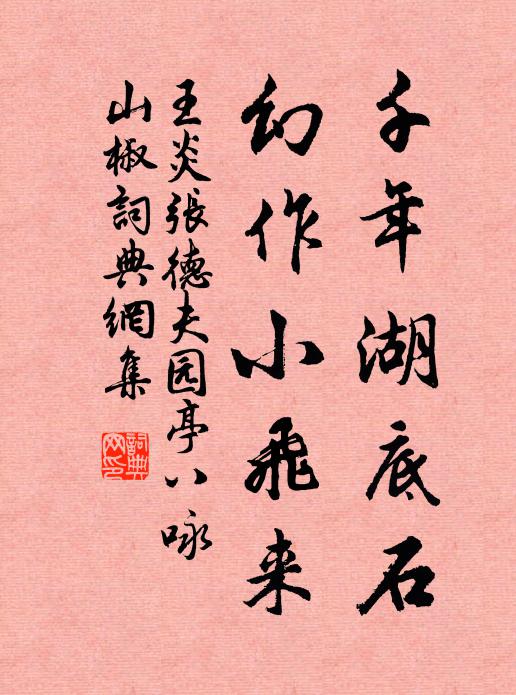 千年湖底石
幻作小飛来
王炎張德夫园亭八咏
山椒詞典網集
詞典
网印